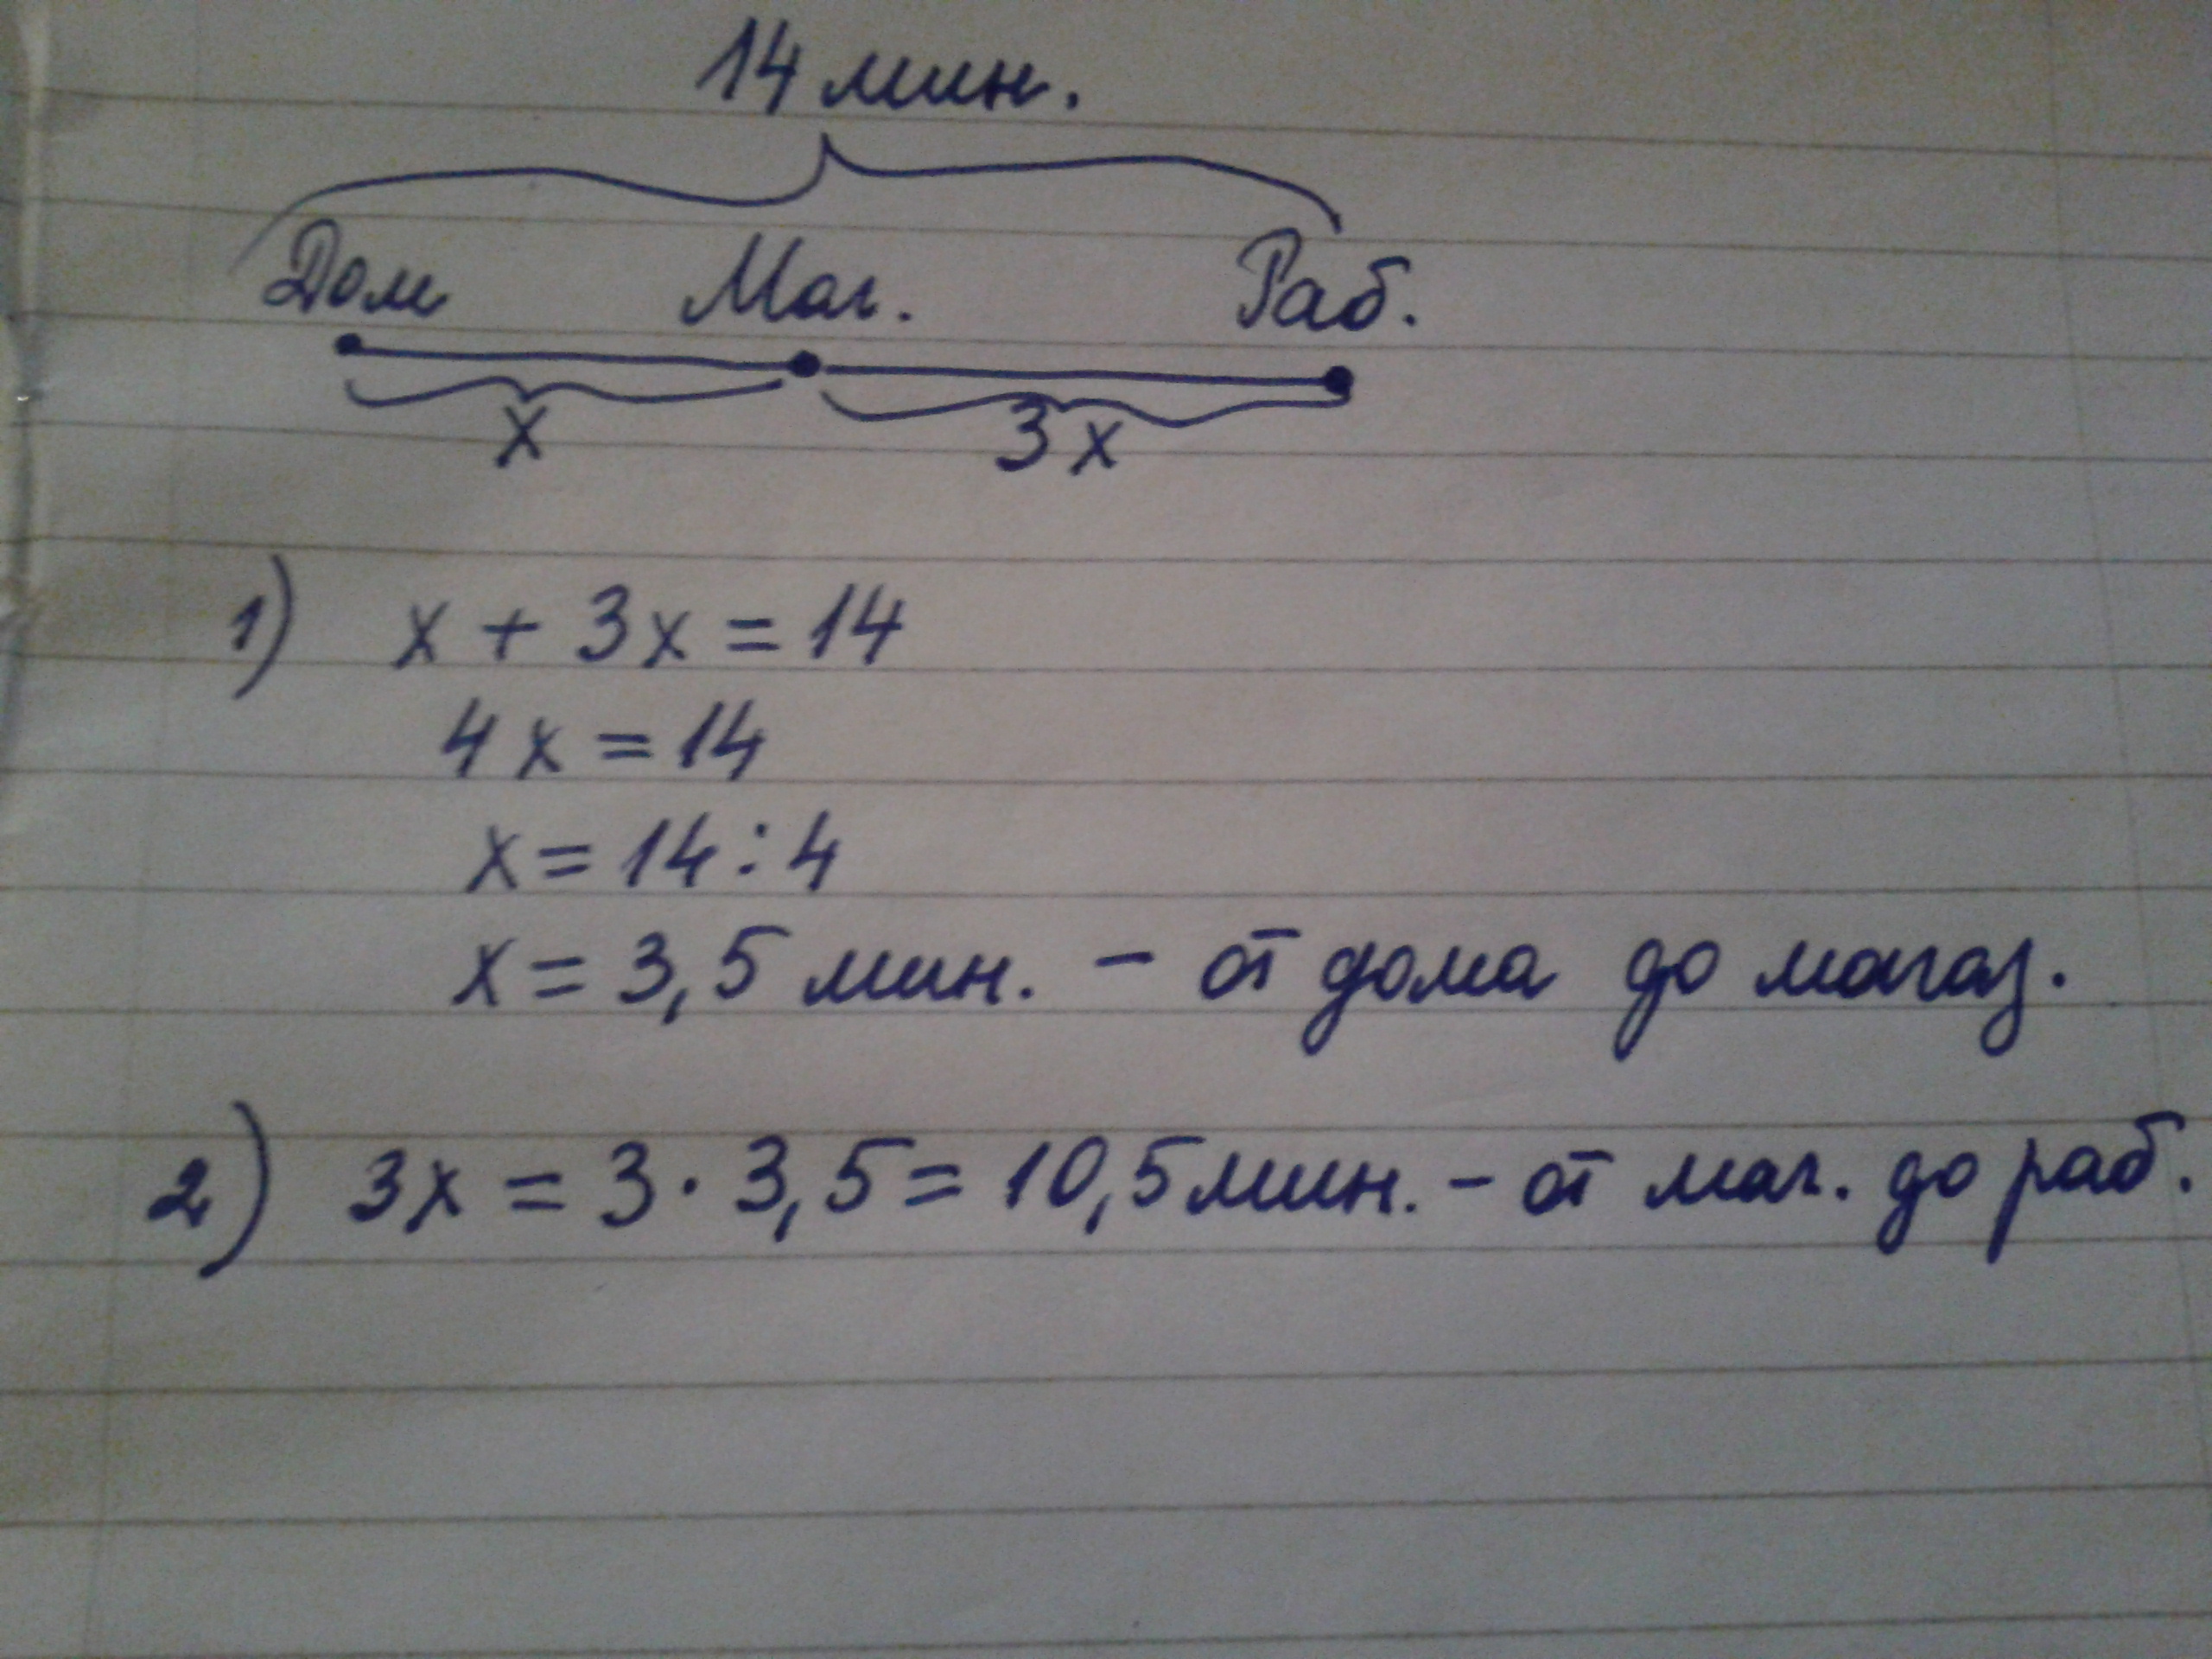 14 мин.
Дом Маг. Раб.
x 3x
1) x + 3x = 14
4x = 14
x = 14 : 4
x = 3,5 мин. - от дома до магаз.
2) 3x = 3 · 3,5 = 10,5 мин. - от маг. до раб.